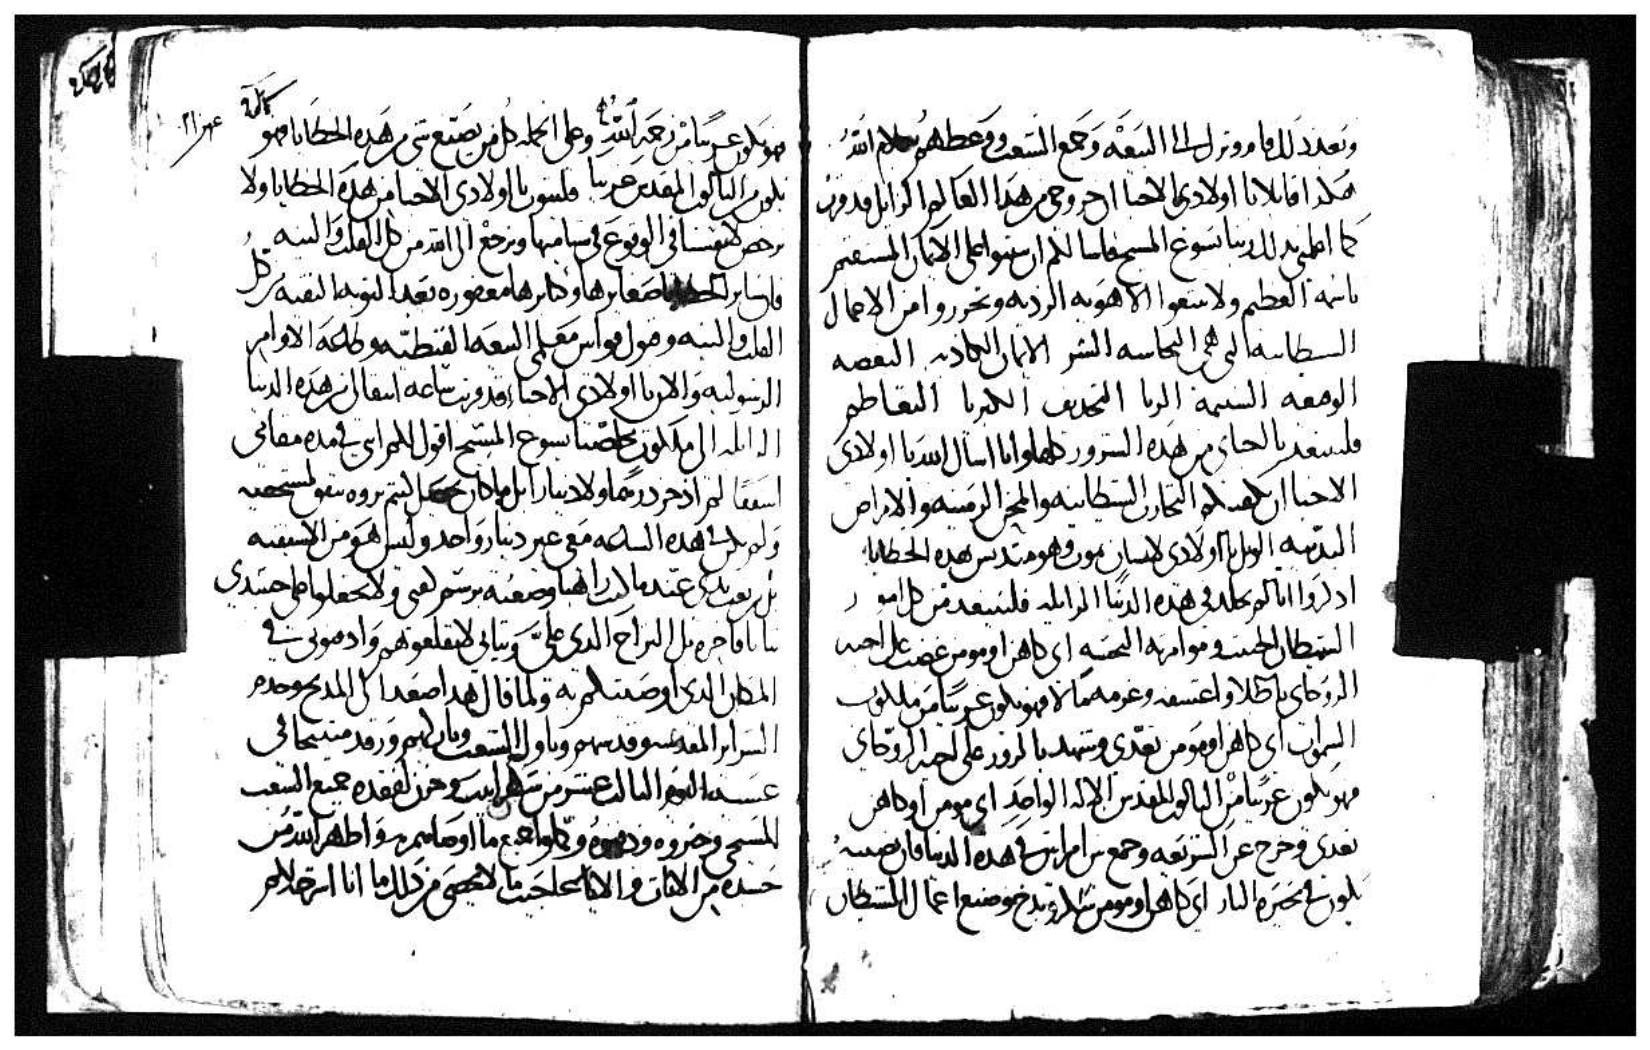 وبعد ذلك قام ونزل الى البيعه وجمع الشعب ووعظهم بكلام الله
هكدا قايلا يا اولادي الاحبا ان خروجي من هدا العالم الزايل قد قرب
كما اعلمني بدلك ربنا يسوع المسيح فاسالكم ان تثبتوا على الايمان المستقيم
باسمه العظيم ولا تتبعوا الاهويه الرديه وتحرروا من الاعمال
الشيطانيه التي هي النجاسه الشر الايمان الكادبه البغضه
الوقيعه الشتيمة الزنا التجديف الكبريا التعاظم
فلنبتعد يا احباي من هده الشرور كلها وانا اسال الله يا اولادي
الاحبا ان يكفيكم التجارب الشيطانيه والمحن الزمنيه والامراض
البدنيه الويل يا اولادي لانسان يموت وهو متدنس بهده الخطايا
ادكروا انا لم نخلد في هده الدنيا الزايله فلنبتعد من كل امور
الشيطان الخبيث وموامرته النجسه اي كاهن او مومن غضب على احد
الروحاي باطلا واعتسفه وغرمه مالا فهو يكون غريبا من ملكوت
السموات اي كاهن او مومن تعدى وشهد بالزور على احد الروحاي
فهو يكون غريبا من التالوت المقدس الاله الواحد اي مومن او كاهن
تعدى وخرج عن الشريعه وجمع بين امراتين في هده الدنيا فان نصيبه
يكون في بحيرة النار اي كاهن او مومن وصنع اعمال الشيطان
فهو يكون غريبا من رحمة الله وعلى الجمله كل من يصنع شي من هده الخطايا فهو
يكون من التالوت المقدس غريبا فلنتوب يا اولادي الاحبا من هده الخطايا ولا
نرخص لانفسنا في الوقوع في شيا منها ونرجع الى الله من كل القلب والنيه
فان ساير الخطايا صغايرها وكبايرها مغفوره بعد التوبه النقيه من كل
القلب والنيه وقبول قوانين معلمي البيعه القبطيه وطاعة الاوامر
الرسوليه والان يا اولادي الاحبا قد قربت ساعه انتقالي من هده الدنيا
الزايله الى ملكوت مخلصنا يسوع المسيح اقول لكم اني في مده مقامي
اسقفا لم ادخر درهما ولا دينارا بل ما كان يحصل ليتم تروه ينفق لمستحقيه
ولم يكن لي هده الساعه معي غير دينار واحد وليس هو من الاسقفيه
بل تعب يدي عندما كنت راهبا وضعته برسم كفني ولا تجعلوا على جسدي
تيابا فاخره بل المزاح الدي علي وتيابي لا تقلعوهم وادفنوني في
المكان الدي اوصيتكم به ولما قال هدا صعد الى المدبح وخدم
السراير المقدسه وقدسهم وناول الشعب وباركهم ورقد متنيحا في
عشيه اليوم التالت عشر من شهر ابيب وحزن لفقده جميع الشعب
المسيحي وحضروه ودفنوه وكملوا جميع ما اوصاهم به واظهر الله من
جسده من الايات والاعاجيب ما لا يحصى من دلك ما انا اشرحه لكم